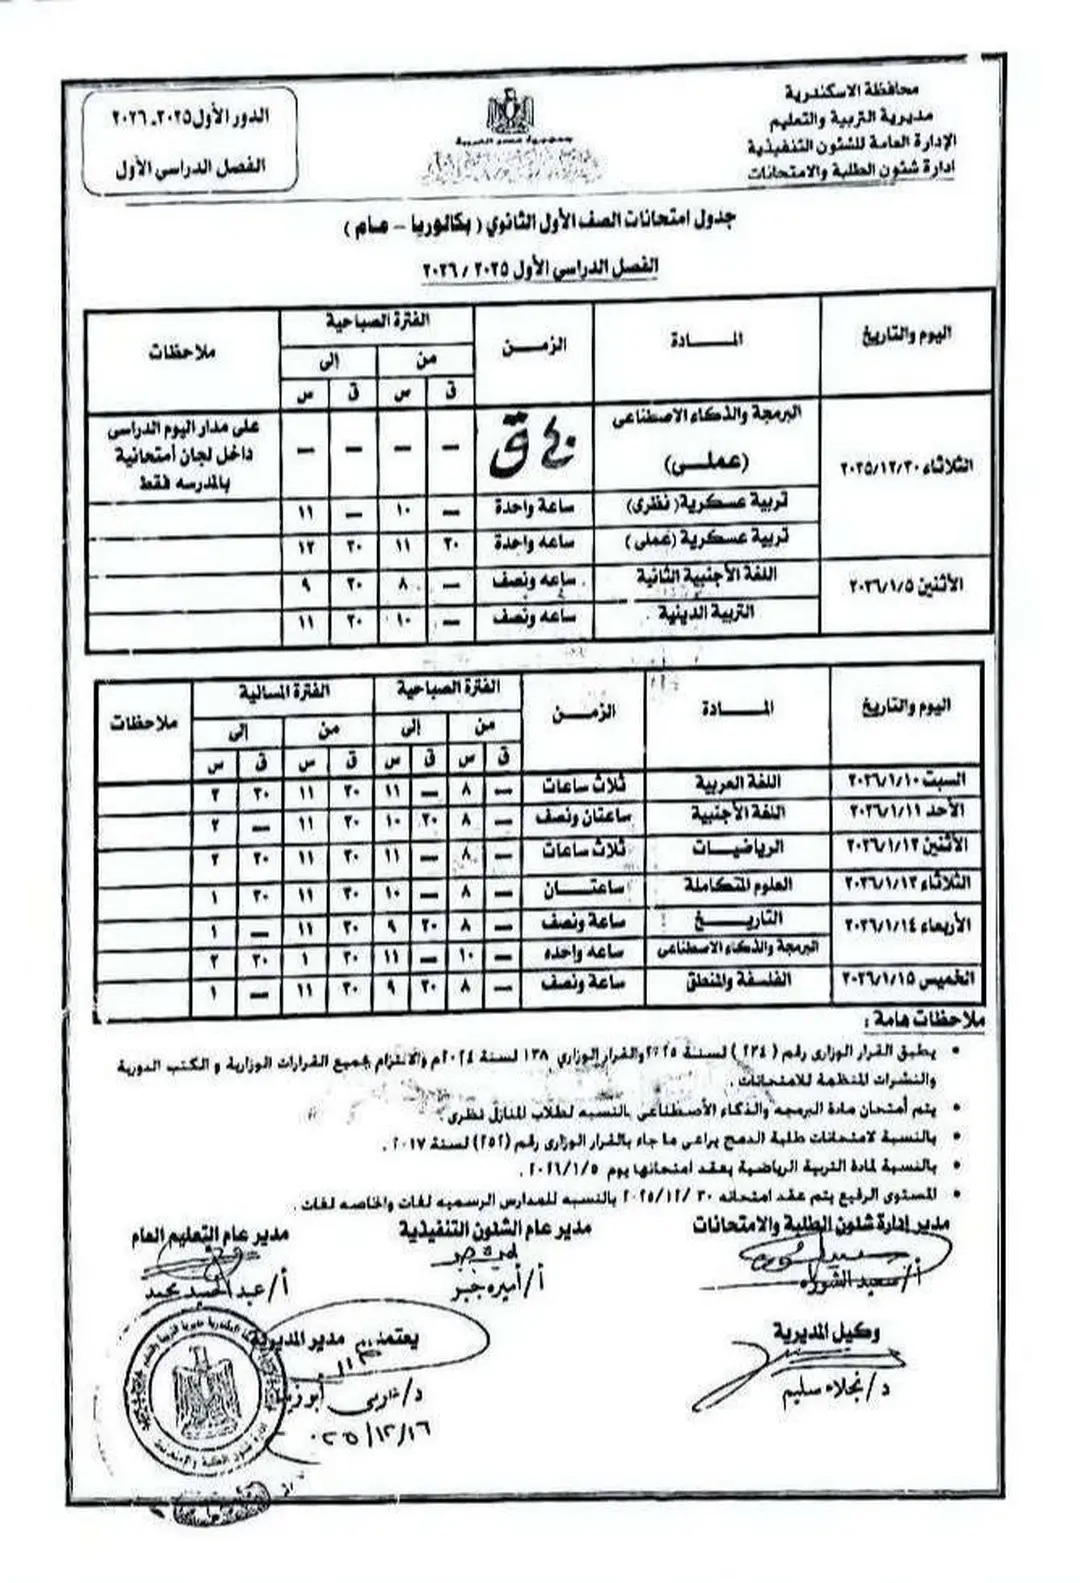 محافظة الاسكندرية
مديرية التربية والتعليم
الإدارة العامة للشئون التنفيذية
إدارة شئون الطلبة والامتحانات
جمهورية مصر العربية
الدور الأول ٢٠٢٥ـ ٢٠٢٦
الفصل الدراسي الأول
جدول امتحانات الصف الأول الثانوي ( بكالوريا – عام )
الفصل الدراسي الأول ٢٠٢٥ / ٢٠٢٦
اليوم والتاريخ المــادة الزمــن الفترة الصباحية ملاحظات
من إلى
ق س ق س
الثلاثاء ٢٠٢٥/١٢/٣٠ البرمجة والذكاء الاصطناعى (عملى) ٤٠ ق – – – – على مدار اليوم الدراسى داخل لجان أمتحانية بالمدرسه فقط
تربية عسكرية( نظرى) ساعة واحدة – ١٠ – ١١
تربية عسكرية (عملى) ساعه واحدة ٣٠ ١١ ٣٠ ١٢
الأثنين ٢٠٢٦/١/٥ اللغة الأجنبية الثانية ساعه ونصف – ٨ ٣٠ ٩
التربية الدينية ساعه ونصف – ١٠ ٣٠ ١١
اليوم والتاريخ المــادة الزمــن الفترة الصباحية الفترة المسائية ملاحظات
من إلى من إلى
ق س ق س ق س ق س
السبت ٢٠٢٦/١/١٠ اللغة العربية ثلاث ساعات – ٨ – ١١ ٣٠ ١١ ٣٠ ٢
الأحد ٢٠٢٦/١/١١ اللغة الأجنبية ساعتان ونصف – ٨ ٣٠ ١٠ ٣٠ ١١ – ٢
الأثنين ٢٠٢٦/١/١٢ الرياضيــات ثلاث ساعات – ٨ – ١١ ٣٠ ١١ ٣٠ ٢
الثلاثاء ٢٠٢٦/١/١٣ العلوم المتكاملة ساعتــان – ٨ – ١٠ ٣٠ ١١ ٣٠ ١
الأربعاء ٢٠٢٦/١/١٤ التاريــخ ساعة ونصف – ٨ ٣٠ ٩ ٣٠ ١١ – ١
البرمجة والذكاء الاصطناعى ساعه واحده – ١٠ – ١١ ٣٠ ١ ٣٠ ٢
الخميس ٢٠٢٦/١/١٥ الفلسفة والمنطق ساعة ونصف – ٨ ٣٠ ٩ ٣٠ ١١ – ١
ملاحظات هامة :
• يطبق القرار الوزارى رقم ( ٢٣٤ ) لسنة ٢٠٢٥ والقرار الوزاري ١٣٨ لسنة ٢٠٢٤م والالتزام بجميع القرارات الوزارية و الكتب الدورية
والنشرات المنظمة للامتحانات .
• يتم أمتحان مادة البرمجه والذكاء الأصطناعى بالنسبه لطلاب المنازل نظرى .
• بالنسبة لامتحانات طلبة الدمج يراعى ما جاء بالقرار الوزارى رقم (٢٥٢) لسنة ٢٠١٧ .
• بالنسبة لمادة التربية الرياضية يعقد امتحانها يوم ٢٠٢٦/١/٥ .
• المستوى الرفيع يتم عقد امتحانه ٣٠ /٢٠٢٥/١٢ بالنسبه للمدارس الرسميه لغات والخاصه لغات .
مدير إدارة شئون الطلبة والامتحانات مدير عام الشئون التنفيذية مدير عام التعليم العام
أ/ سعيد أ/ أميره أ/ عبد الحميد محمد
وكيل المديرية يعتمد ،، مدير المديرية
د/ نجلاء سليم د/ عربى أبو زيد
٢٠٢٥/١٢/١٦